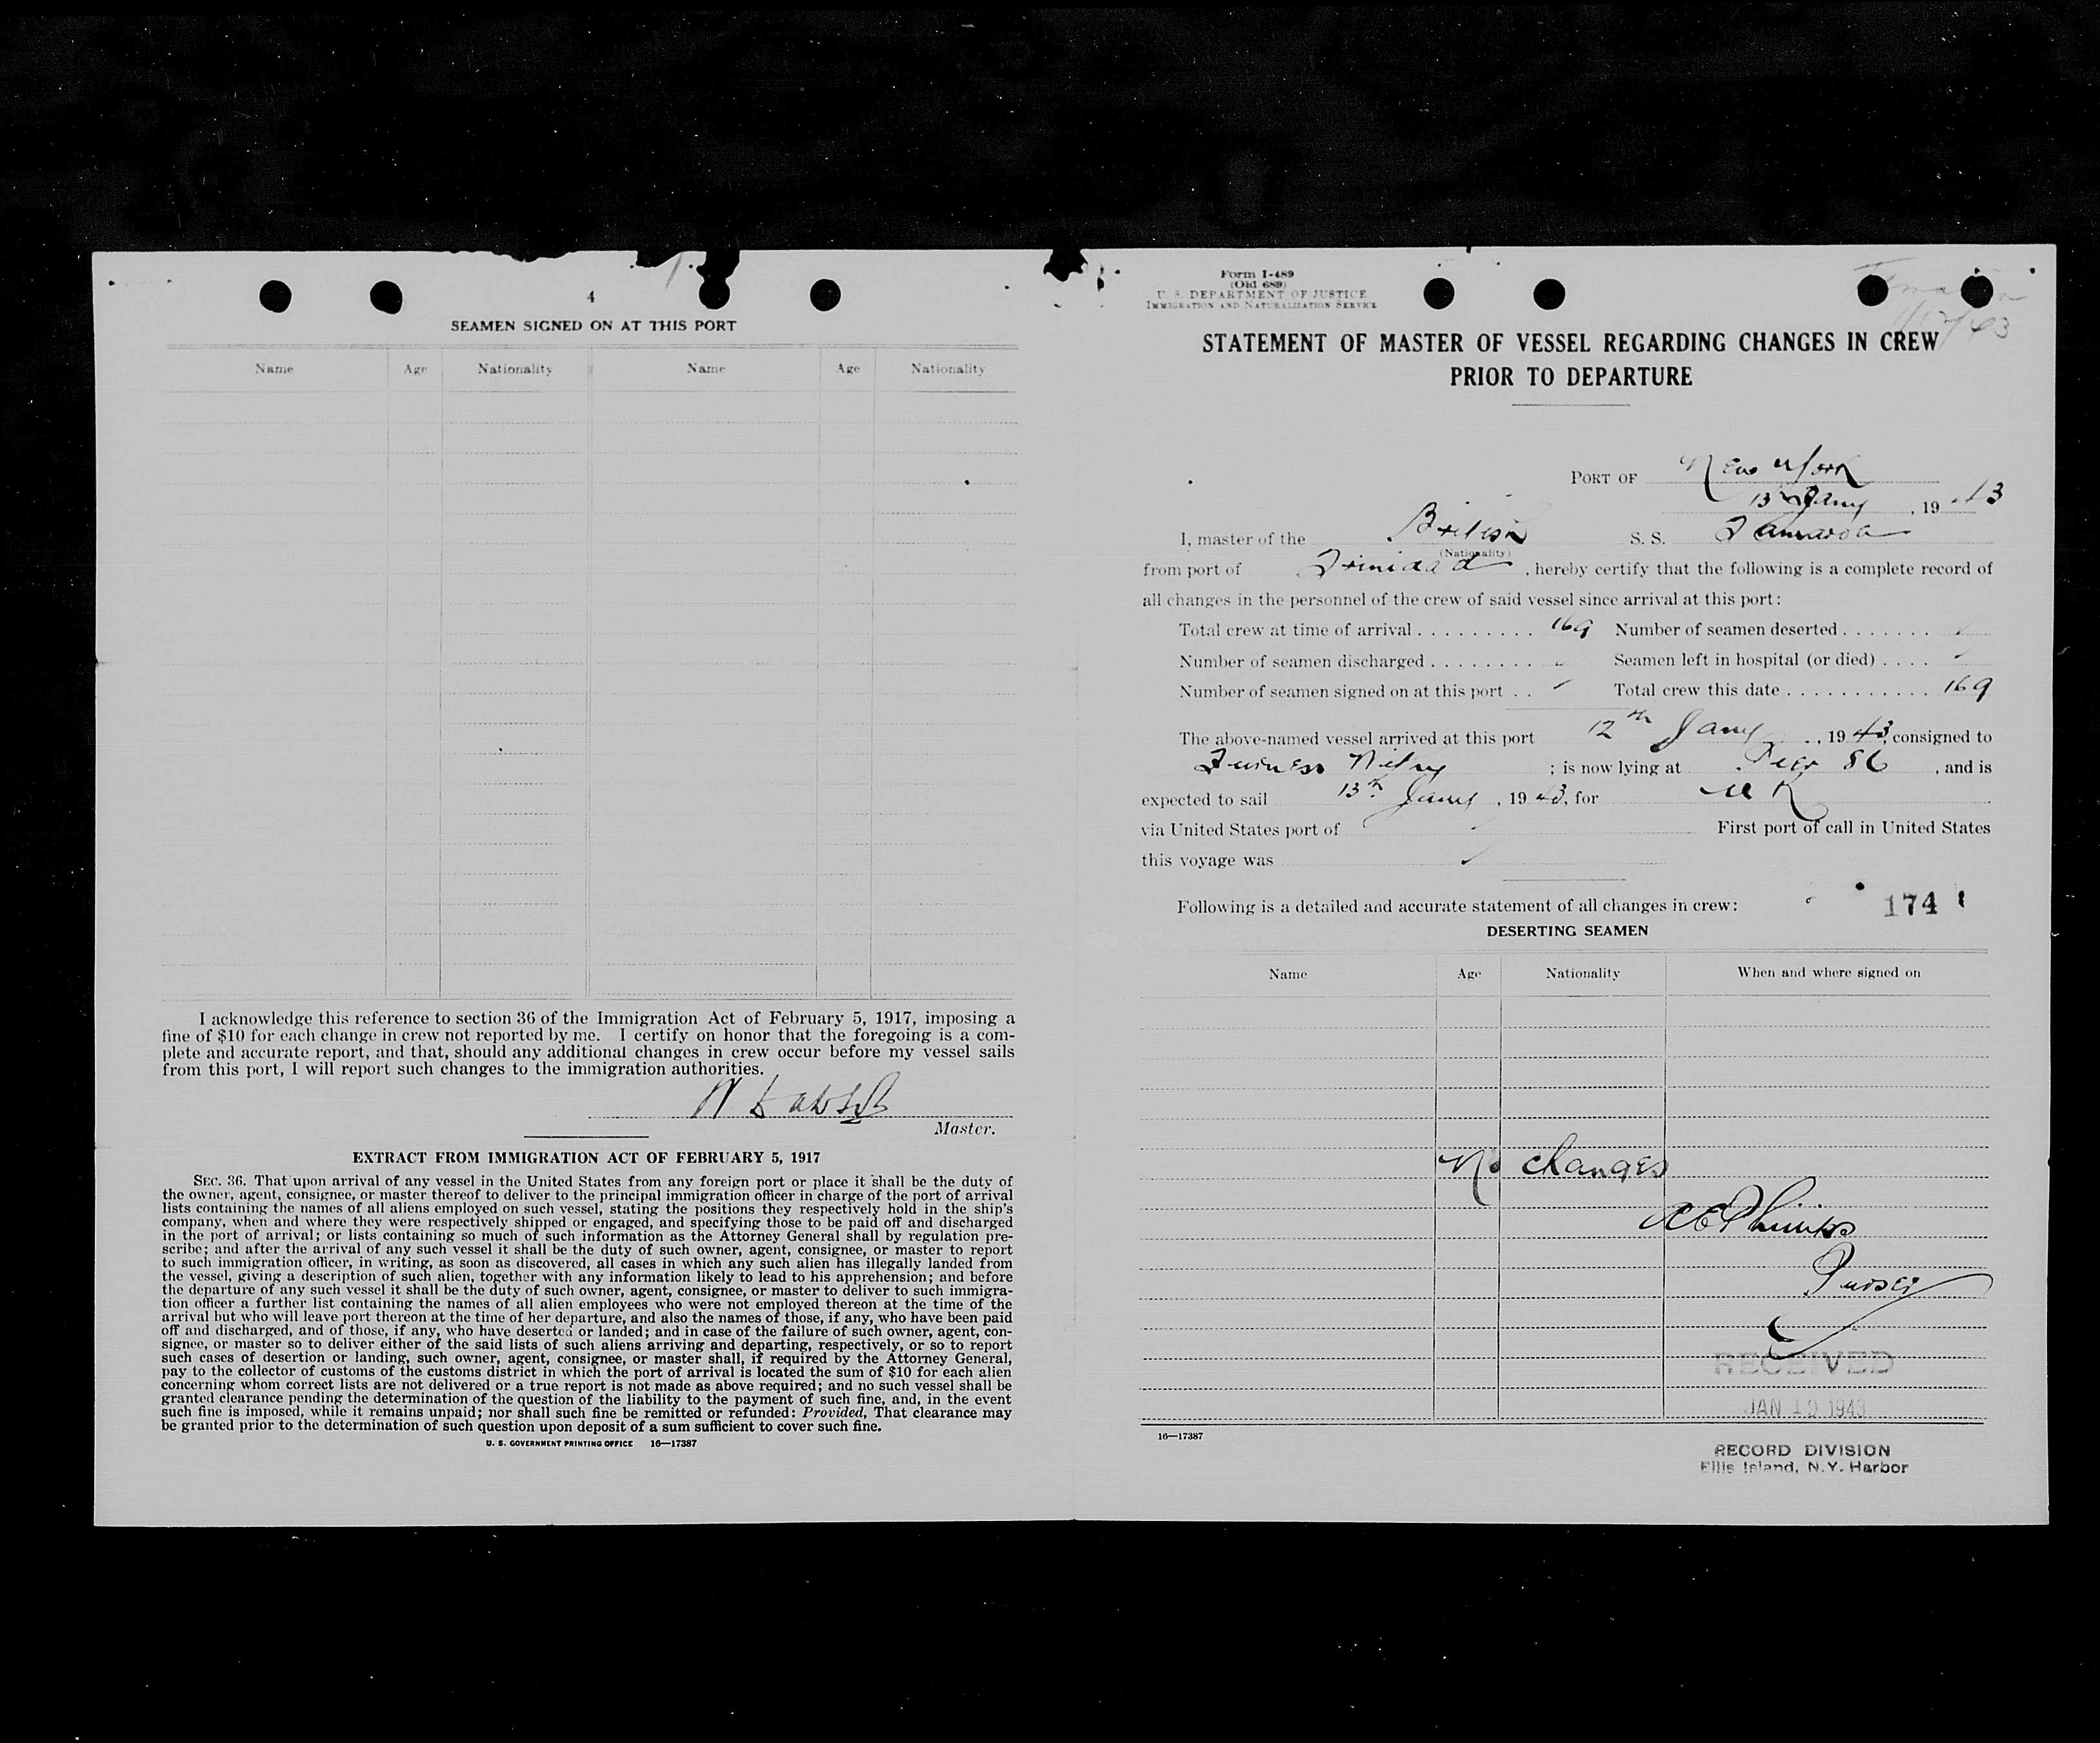 4
SEAMEN SIGNED ON AT THIS PORT
Name Age Nationality Name Age Nationality
I acknowledge this reference to section 36 of the Immigration Act of February 5, 1917, imposing a
fine of $10 for each change in crew not reported by me. I certify on honor that the foregoing is a com-
plete and accurate report, and that, should any additional changes in crew occur before my vessel sails
from this port, I will report such changes to the immigration authorities.
Master.
EXTRACT FROM IMMIGRATION ACT OF FEBRUARY 5, 1917
SEC. 36. That upon arrival of any vessel in the United States from any foreign port or place it shall be the duty of
the owner, agent, consignee, or master thereof to deliver to the principal immigration officer in charge of the port of arrival
lists containing the names of all aliens employed on such vessel, stating the positions they respectively hold in the ship's
company, when and where they were respectively shipped or engaged, and specifying those to be paid off and discharged
in the port of arrival; or lists containing so much of such information as the Attorney General shall by regulation pre-
scribe; and after the arrival of any such vessel it shall be the duty of such owner, agent, consignee, or master to report
to such immigration officer, in writing, as soon as discovered, all cases in which any such alien has illegally landed from
the vessel, giving a description of such alien, together with any information likely to lead to his apprehension; and before
the departure of any such vessel it shall be the duty of such owner, agent, consignee, or master to deliver to such immigra-
tion officer a further list containing the names of all alien employees who were not employed thereon at the time of the
arrival but who will leave port thereon at the time of her departure, and also the names of those, if any, who have been paid
off and discharged, and of those, if any, who have deserted or landed; and in case of the failure of such owner, agent, con-
signee, or master so to deliver either of the said lists of such aliens arriving and departing, respectively, or so to report
such cases of desertion or landing, such owner, agent, consignee, or master shall, if required by the Attorney General,
pay to the collector of customs of the customs district in which the port of arrival is located the sum of $10 for each alien
concerning whom correct lists are not delivered or a true report is not made as above required; and no such vessel shall be
granted clearance pending the determination of the question of the liability to the payment of such fine, and, in the event
such fine is imposed, while it remains unpaid; nor shall such fine be remitted or refunded: Provided, That clearance may
be granted prior to the determination of such question upon deposit of a sum sufficient to cover such fine.
U. S. GOVERNMENT PRINTING OFFICE 16—17387
Form I-489
(Old 689)
U. S. DEPARTMENT OF JUSTICE
IMMIGRATION AND NATURALIZATION SERVICE
STATEMENT OF MASTER OF VESSEL REGARDING CHANGES IN CREW
PRIOR TO DEPARTURE
PORT OF New York
13th Jany, 1943
I, master of the British S. S. Tamaroa
(Nationality)
from port of Trinidad, hereby certify that the following is a complete record of
all changes in the personnel of the crew of said vessel since arrival at this port:
Total crew at time of arrival . . . . . . . . . 169 Number of seamen deserted . . . . . . .
Number of seamen discharged . . . . . . . . Seamen left in hospital (or died) . . . .
Number of seamen signed on at this port . . Total crew this date . . . . . . . . . . . 169
The above-named vessel arrived at this port 12th Jany, 1943, consigned to
Furness Withy; is now lying at Pier 86, and is
expected to sail 13th Jany, 1943, for UK
via United States port of First port of call in United States
this voyage was
Following is a detailed and accurate statement of all changes in crew: 174
DESERTING SEAMEN
Name Age Nationality When and where signed on
No changes
Purser
RECEIVED
JAN 19 1943
16—17387
RECORD DIVISION
Ellis Island, N.Y. Harbor